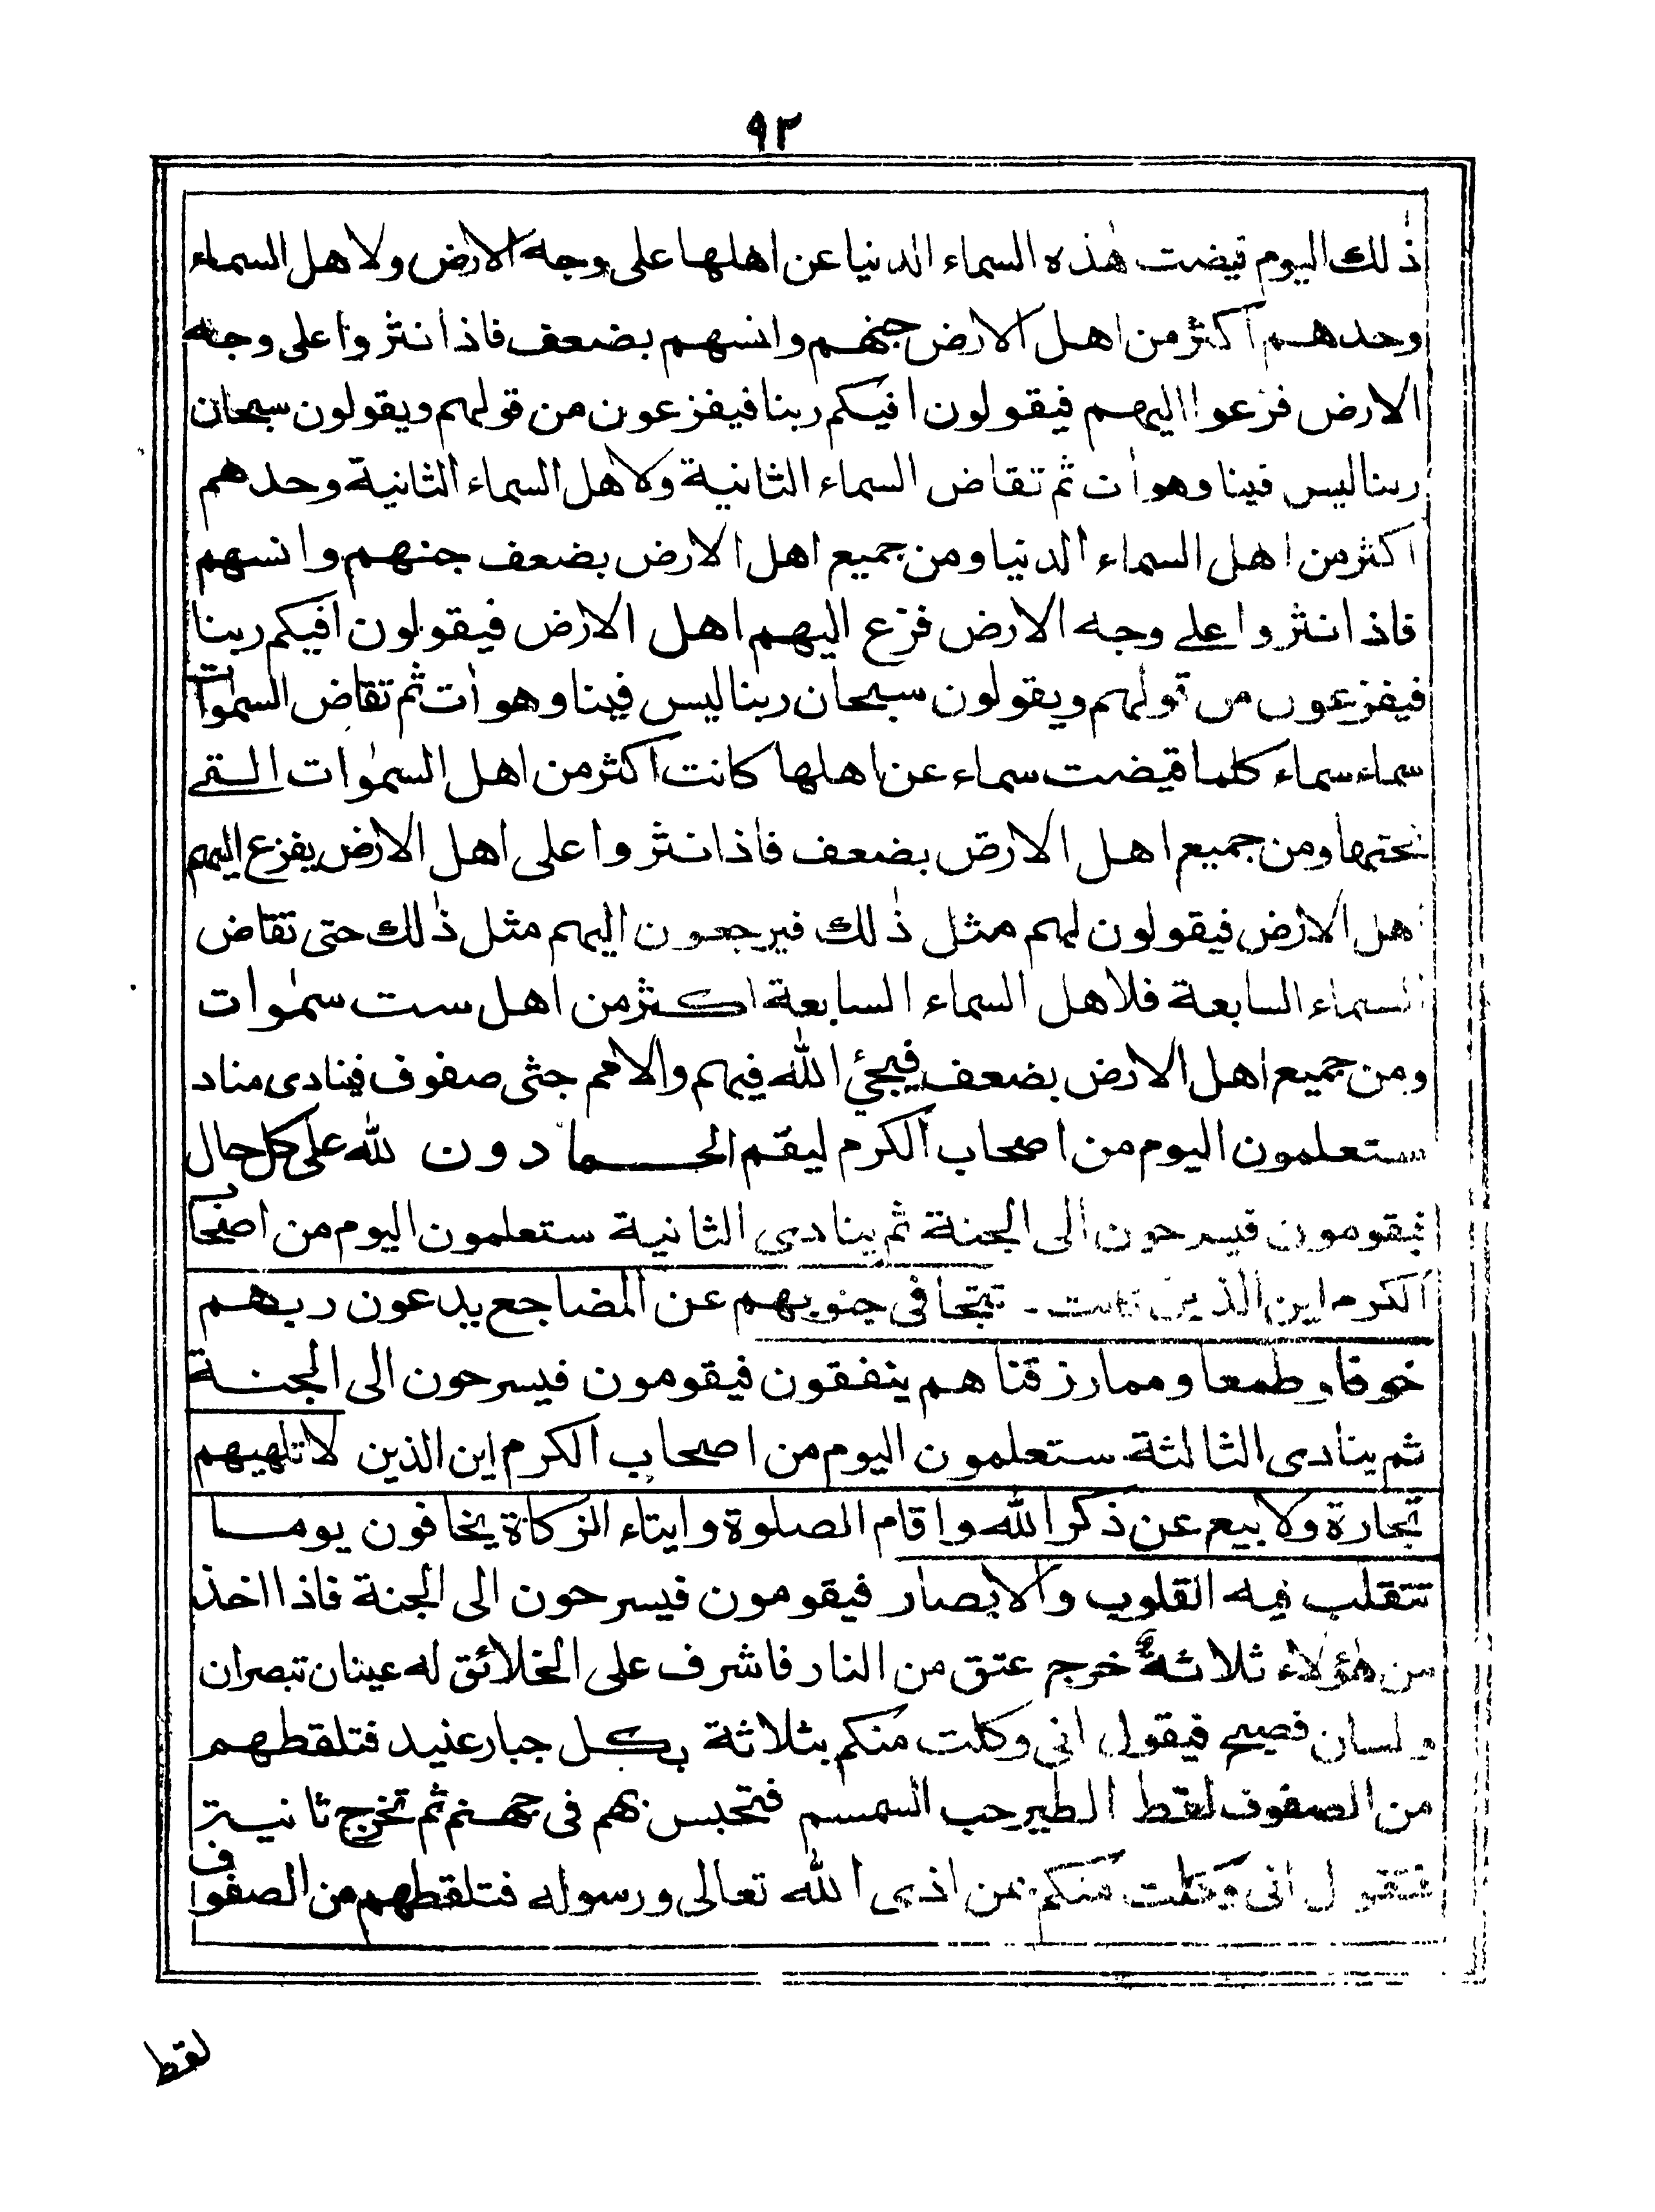 ٩٢
ذٰلك اليوم قيضت هٰذه السماء الدنيا عن اهلها على وجه الارض ولاهل السماء
وحدهم اكثر من اهل الارض جنهم وانسهم بضعف فاذا نثروا على وجه
الارض فزعوا اليهم فيقولون افيكم ربنا فيفزعون من قولهم ويقولون سبحان
ربنا ليس فينا وهو اٰت ثم تقاض السماء الثانية ولاهل السماء الثانية وحدهم
اكثر من اهل السماء الدنيا ومن جميع اهل الارض بضعف جنهم وانسهم
فاذا نثروا على وجه الارض فزع اليهم اهل الارض فيقولون افيكم ربنا
فيفزعون من قولهم ويقولون سبحان ربنا ليس فينا وهو اٰت ثم تقاض السمٰوات
سماء سماء كلما قيضت سماء عن اهلها كانت اكثر من اهل السمٰوات التي
تحتها ومن جميع اهل الارض بضعف فاذا نثروا على اهل الارض يفزع اليهم
اهل الارض فيقولون لهم مثل ذٰلك فيرجعون اليهم مثل ذٰلك حتى تقاض
السماء السابعة فلاهل السماء السابعة اكثر من اهل ست سمٰوات
ومن جميع اهل الارض بضعف فيجئ الله فيهم والامم جثى صفوف فينادى مناد
ستعلمون اليوم من اصحاب الكرم ليقم الحمادون لله على كل حال
فيقومون فيسرحون الى الجنة ثم ينادى الثانية ستعلمون اليوم من اصحاب
الكرم اين الذين كانت تتجافى جنوبهم عن المضاجع يدعون ربهم
خوفا وطمعا ومما رزقناهم ينفقون فيقومون فيسرحون الى الجنة
ثم ينادى الثالثة ستعلمون اليوم من اصحاب الكرم اين الذين لا تلهيهم
تجارة ولا بيع عن ذكر الله واقام الصلوة وايتاء الزكاة يخافون يوما
تتقلب فيه القلوب والابصار فيقومون فيسرحون الى الجنة فاذا اخذ
من هٰؤلاء ثلاثة خرج عنق من النار فاشرف على الخلائق له عينان تبصران
ولسان فصيح فيقول انى وكلت منكم بثلاثة بكل جبار عنيد فتلقطهم
من الصفوف لقط الطير حب السمسم فتحبس بهم فى جهنم ثم تخرج ثانية
فتقول انى وكلت منكم بمن اذى الله تعالى ورسوله فتلقطهم من الصفوف
لقط